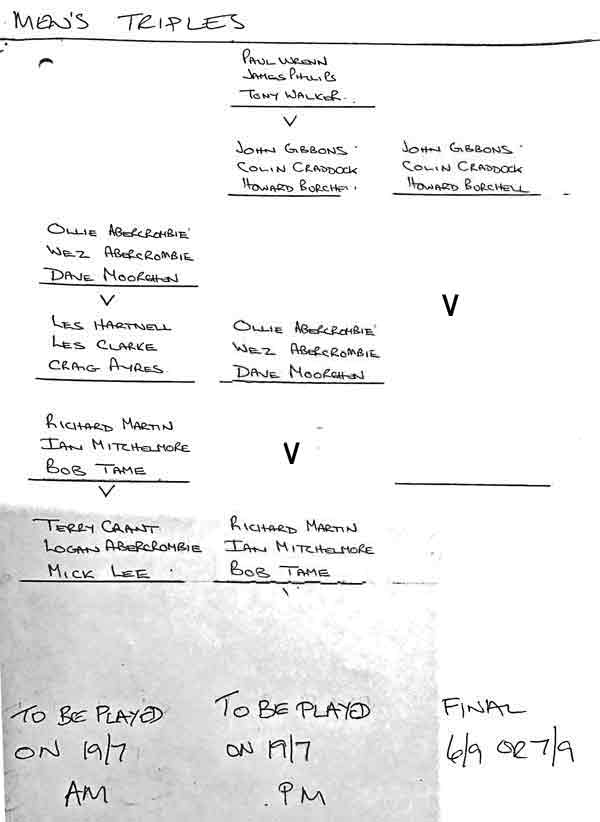 MEN'S TRIPLES
PAUL WRENN
JAMES PHILLIPS
TONY WALKER
V
JOHN GIBBONS
COLIN CRADDOCK
HOWARD BURCHELL
JOHN GIBBONS
COLIN CRADDOCK
HOWARD BURCHELL
OLLIE ABERCROMBIE
WEZ ABERCROMBIE
DAVE MOORGHEN
V
LES HARTNELL
LES CLARKE
CRAIG AYRES
OLLIE ABERCROMBIE
WEZ ABERCROMBIE
DAVE MOORGHEN
V
RICHARD MARTIN
IAN MITCHELMORE
BOB TAME
V
V
TERRY GRANT
LOGAN ABERCROMBIE
MICK LEE
RICHARD MARTIN
IAN MITCHELMORE
BOB TAME
TO BE PLAYED
ON 19/7
AM
TO BE PLAYED
ON 19/7
PM
FINAL
6/9 OR 7/9